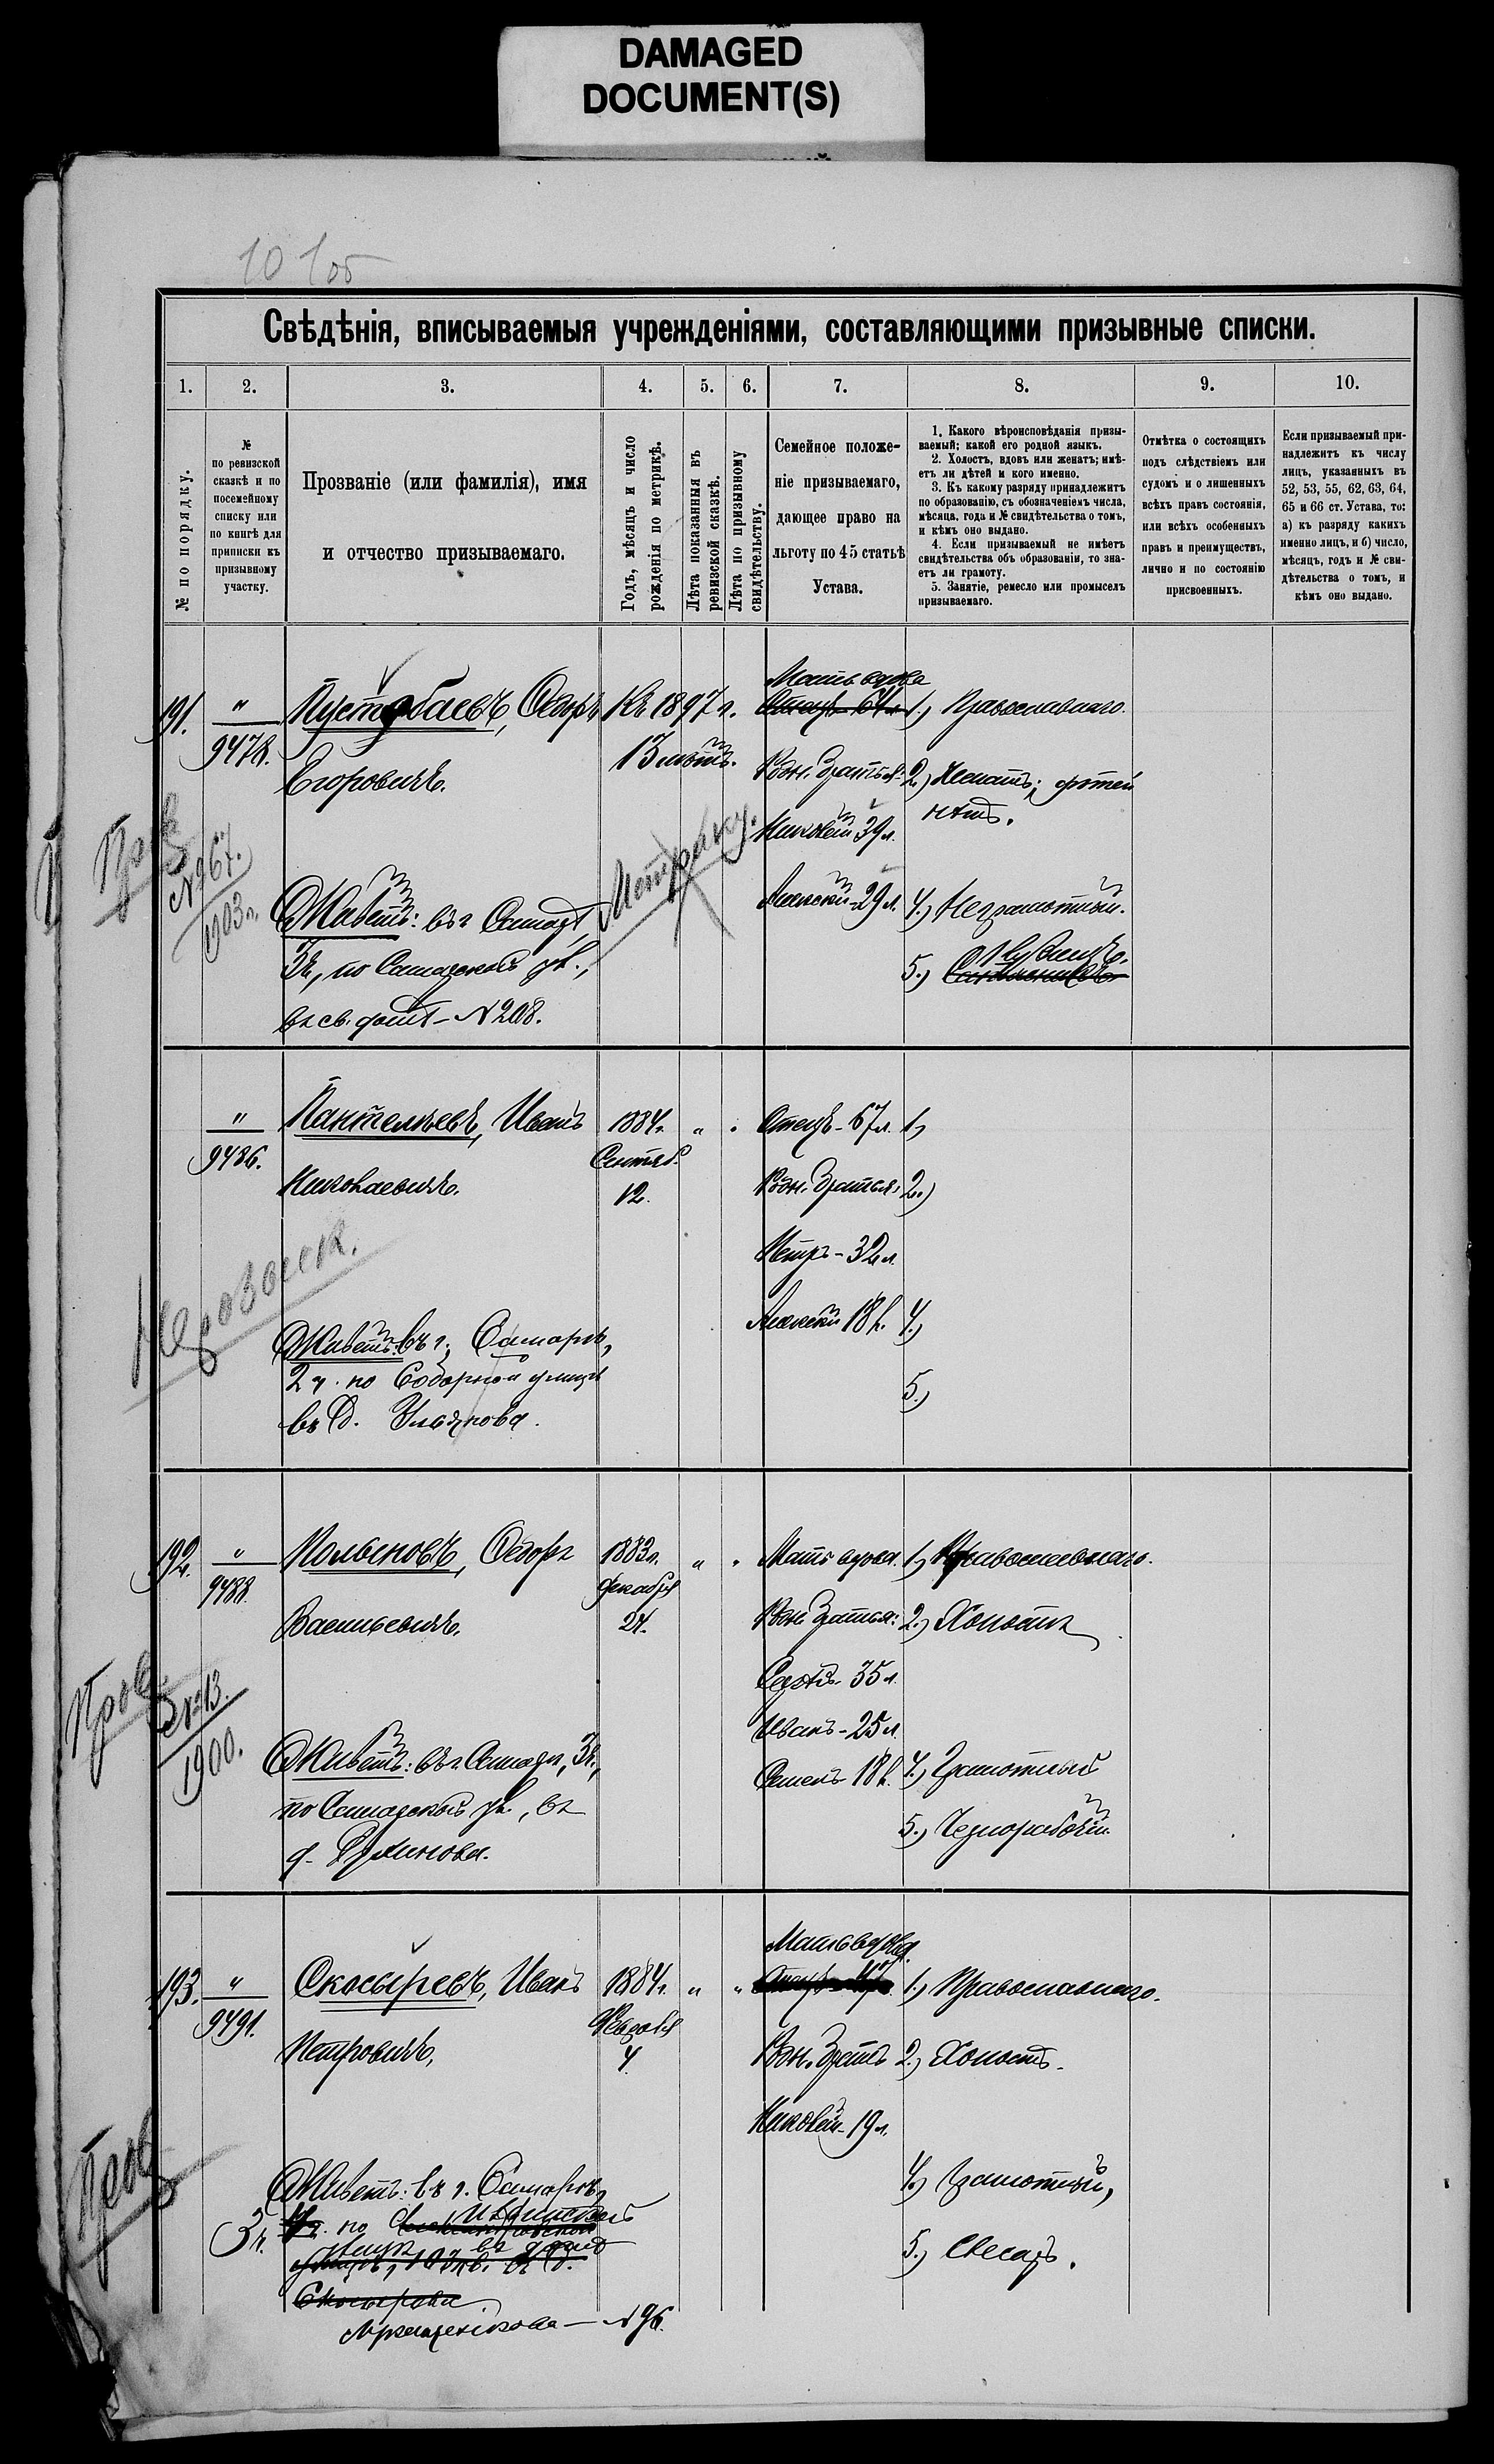 DAMAGED
DOCUMENT(S)
10 1об
Свѣдѣнія, вписываемыя учрежденіями, составляющими призывные списки.
1. 2. 3. 4. 5. 6. 7. 8. 9. 10.
№ по порядку.
№
по ревизской
сказкѣ и по
посемейному
списку или
по книгѣ для
приписки къ
призывному
участку.
Прозваніе (или фамилія), имя
и отчество призываемаго.
Годъ, мѣсяцъ и число
рожденія по метрикѣ.
Лѣта показанныя въ
ревизской сказкѣ.
Лѣта по призывному
свидѣтельству.
Семейное положе-
ніе призываемаго,
дающее право на
льготу по 45 статьѣ
Устава.
1. Какого вѣроисповѣданія призы-
ваемый; какой его родной языкъ.
2. Холостъ, вдовъ или женатъ; имѣ-
етъ ли дѣтей и кого именно.
3. Къ какому разряду принадлежитъ
по образованію, съ обозначеніемъ числа,
мѣсяца, года и № свидѣтельства о томъ,
и кѣмъ оно выдано.
4. Если призываемый не имѣетъ
свидѣтельства объ образованіи, то зна-
етъ ли грамоту.
5. Занятіе, ремесло или промыселъ
призываемаго.
Отмѣтка о состоящихъ
подъ слѣдствіемъ или
судомъ и о лишенныхъ
всѣхъ правъ состоянія,
или всѣхъ особенныхъ
правъ и преимуществъ,
лично и по состоянію
присвоенныхъ.
Если призываемый при-
надлежитъ къ числу
лицъ, указанныхъ въ
52, 53, 55, 62, 63, 64,
65 и 66 ст. Устава, то:
а) къ разряду какихъ
именно лицъ, и б) число,
мѣсяцъ, годъ и № сви-
дѣтельства о томъ, и
кѣмъ оно выдано.
191. " 9478.
Пустобаевъ, Ѳедоръ
Егоровичъ.
Къ 1897 г.
13 лѣтъ.
Мать вдова
Отецъ 64 л.
Родн. братья:
Николай 39 л.
Алексѣй 29 л.
1.) Православнаго.
2.) Женатъ; дѣтей
нѣтъ.
4.) Неграмотный.
5.)
Пров
№ 67.
1903 г.
Метрику.
Живетъ: въ г. Самарѣ,
3 ч., по Самарской ул.,
въ св. домѣ - № 208.
" 9486.
Пантелѣевъ, Иванъ
Николаевичъ.
1884 г.
Сентяб.
12.
Отецъ - 67 л.
Родн. братья:
Петръ - 32 л.
Алексѣй 18 л.
1.)
2.)
4.)
5.)
Живетъ: въ г. Самарѣ,
2 ч. по Соборной улицѣ
въ д.
192. " 9488.
Полыновъ, Ѳедоръ
Васильевичъ.
1883 г.
Декабря
24.
Мать вдова.
Родн. братья:
Сергѣй - 35 л.
Иванъ - 25 л.
Семенъ 18 л.
1.) Православнаго.
2.) Холостъ
4.) Грамотный
5.) Чернорабочій.
Пров
№ 13.
1900.
Живетъ: въ г. Самарѣ, 3 ч.,
по Самарской ул., въ
д.
193. " 9491.
Скосыревъ, Иванъ
Петровичъ.
1884 г.
Февраля
4.
Мать вдова.
Родн. братъ
Николай - 19 л.
1.) Православнаго.
2.) Холостъ.
4.) Грамотный,
5.) Слесарь.
Пров
Живетъ: въ г. Самарѣ,
3 ч. по
въ домѣ
Скосырева
№ 96.